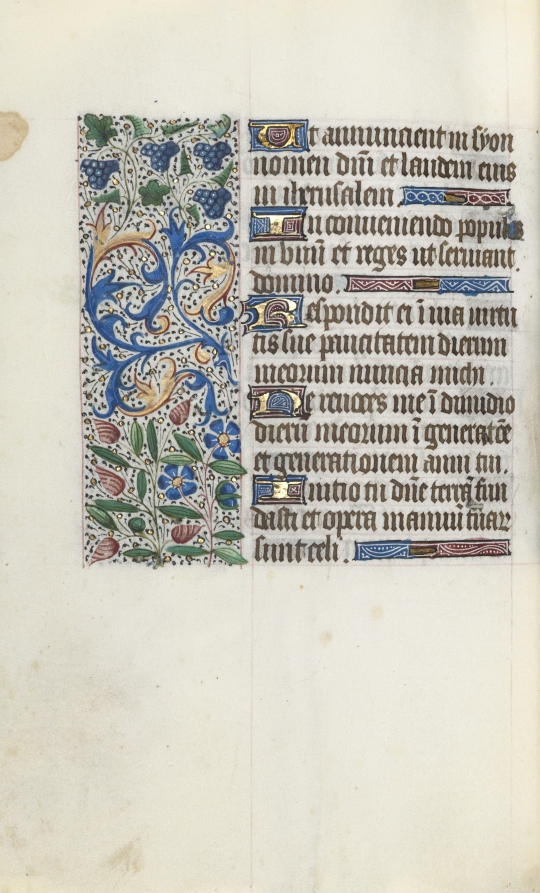 Ut annuncient in syon
nomen dn̄i et laudem eius
in iherusalem
In conueniendo populos
in vnū et reges ut seruiant.
domino.
Respondit ei ī uia uirtu
tis sue paucitatem dierum
meorum nuncia michi
Ne reuoces me ī dimidio
dierū meorum ī generatōe
et generationem anni tui.
Initio tu dn̄e terrā fun
dasti et opera manuū tuar
sunt celi.